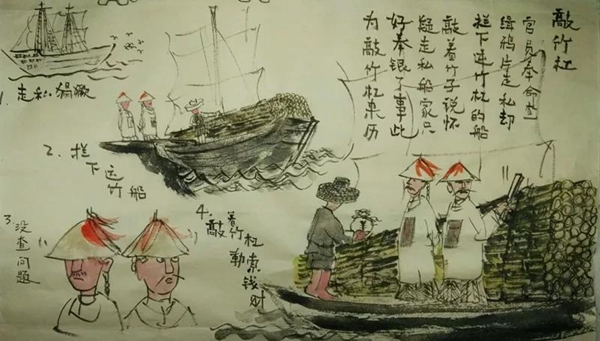 敲竹杠
官员奉命查
缉鸦片走私却
拦下运竹杠的船
敲着竹子说怀
疑走私船家只
好奉银了事此
为敲竹杠来历
1. 走私猖獗
2. 拦下运竹船
3. 没查问题
4. 敲着竹杠
勒索钱财